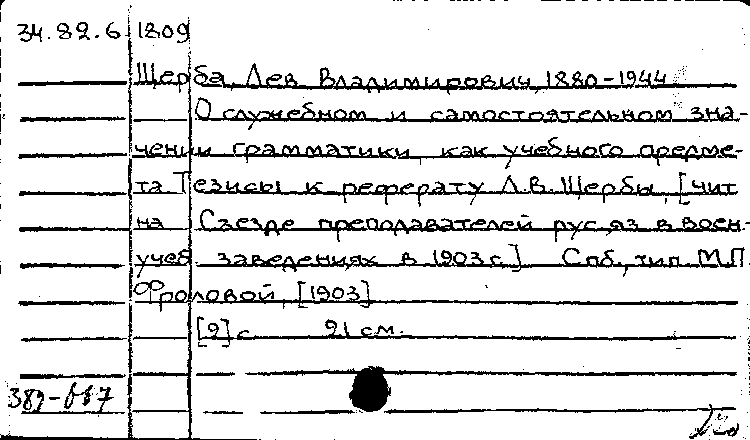 34.82.6 1809
Щерба, Лев Владимирович, 1880-1944
О служебном и самостоятельном зна-
чении грамматики, как учебного предме-
та Тезисы к реферату Л.В. Щербы, [чит
на Съезде преподавателей рус яз в воен-
учеб. заведениях в 1903 г.] Спб., тип. М.П.
Фроловой, [1903]
[2] с 21 см.